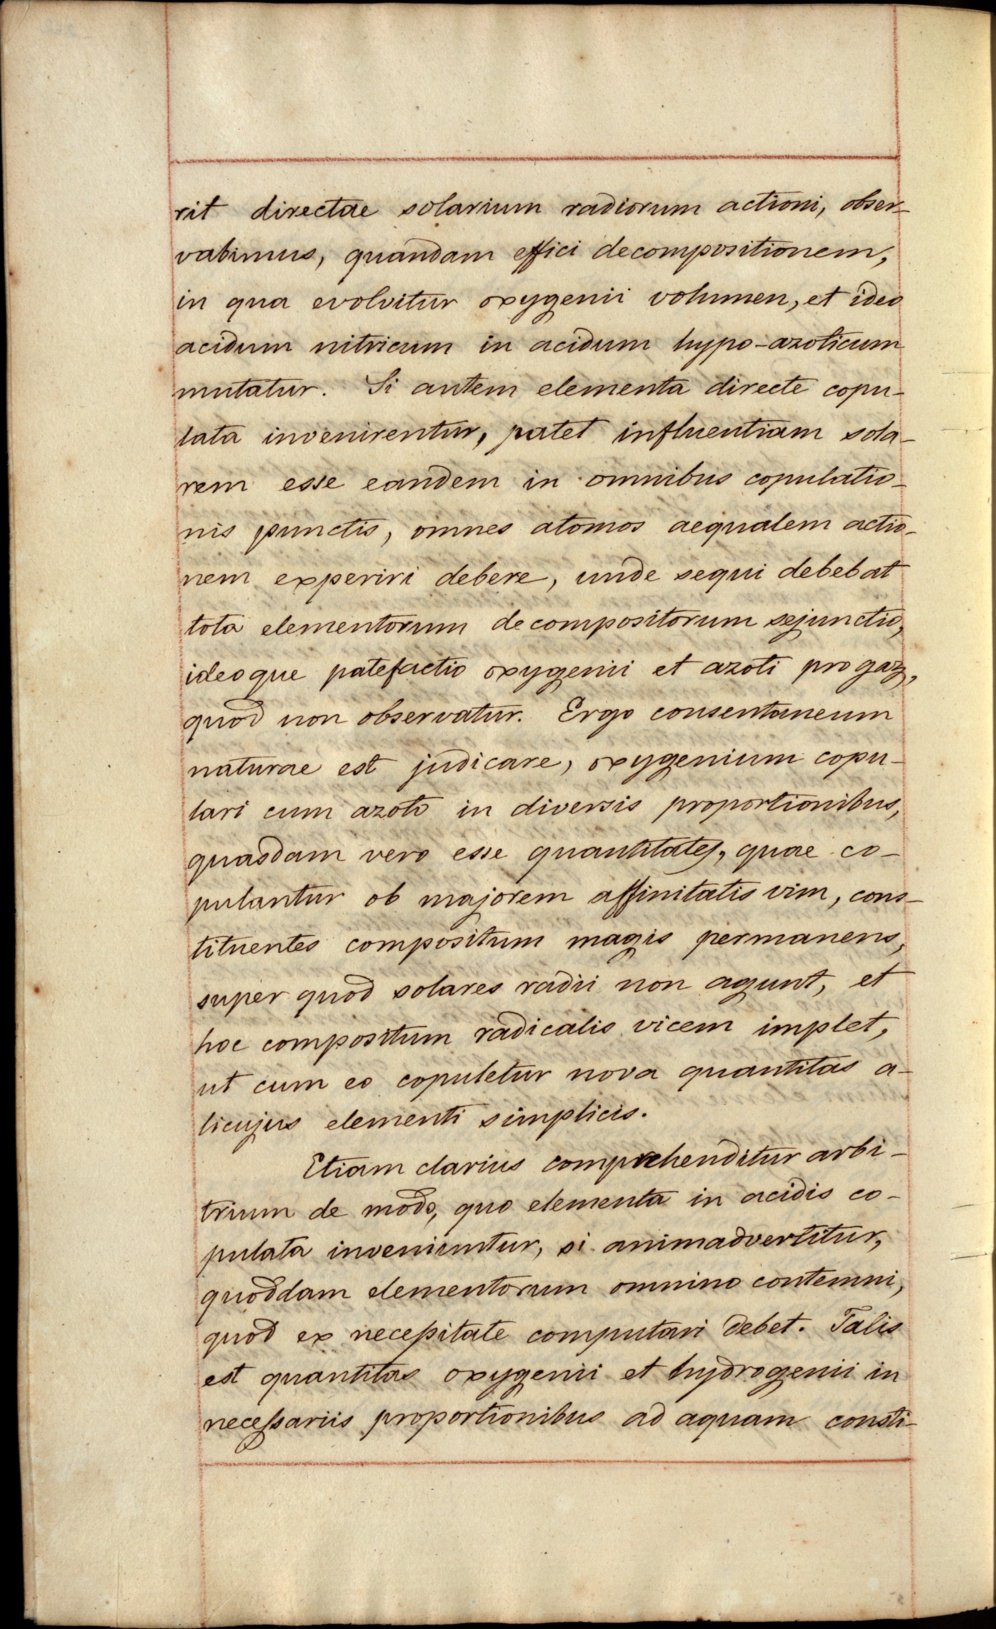 rit directae solarium radiorum actioni, obser-
vabimus, quandam effici decompositionem,
in qua evolvitur oxygenii volumen, et ideo
acidum nitricum in acidum hypo-azoticum
mutatur. Si autem elementa directe copu-
lata invenirentur, patet influentiam sola-
rem esse eandem in omnibus copulatio-
nis punctis, omnes atomos aequalem actio-
nem experiri debere, unde sequi debebat
tota elementorum decompositorum sejunctio,
ideoque patefactio oxygenii et azoti pro gaz,
quod non observatur. Ergo consentaneum
naturae est judicare, oxygenium copu-
lari cum azoto in diversis proportionibus,
quasdam vero esse quantitates, quae co-
pulantur ob majorem affinitatis vim, cons-
tituentes compositum magis permanens,
super quod solares radii non agunt, et
hoc compositum radicalis vicem implet,
ut cum eo copuletur nova quantitas a-
licujus elementi simplicis.
Etiam clarius comprehenditur arbi-
trium de modo, quo elementa in acidis co-
pulata inveniuntur, si animadvertitur,
quoddam elementorum omnino contemni,
quod ex necessitate computari debet. Talis
est quantitas oxygenii et hydrogenii in
necessariis proportionibus ad aquam consti-